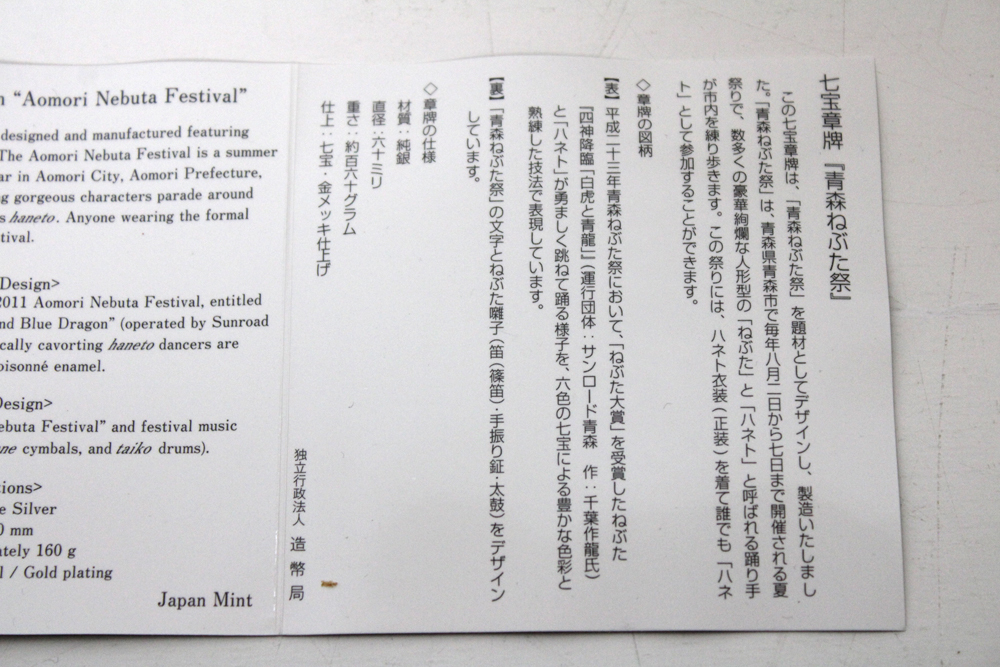 n "Aomori Nebuta Festival"
designed and manufactured featuring
The Aomori Nebuta Festival is a summer
ar in Aomori City, Aomori Prefecture,
g gorgeous characters parade around
s haneto. Anyone wearing the formal
tival.
Design>
2011 Aomori Nebuta Festival, entitled
nd Blue Dragon" (operated by Sunroad
cally cavorting haneto dancers are
oisonné enamel.
Design>
ebuta Festival" and festival music
ne cymbals, and taiko drums).
ions>
e Silver
0 mm
ately 160 g
l / Gold plating
Japan Mint
七宝章牌『青森ねぶた祭』
この七宝章牌は、「青森ねぶた祭」を題材としてデザインし、製造いたしまし
た。「青森ねぶた祭」は、青森県青森市で毎年八月二日から七日まで開催される夏
祭りで、数多くの豪華絢爛な人形型の「ねぶた」と「ハネト」と呼ばれる踊り手
が市内を練り歩きます。この祭りには、ハネト衣装(正装)を着て誰でも「ハネ
ト」として参加することができます。
◇章牌の図柄
【表】平成二十三年青森ねぶた祭において、「ねぶた大賞」を受賞したねぶた
『四神降臨「白虎と青龍」』(運行団体:サンロード青森 作:千葉作龍氏)
と「ハネト」が勇ましく跳ねて踊る様子を、六色の七宝による豊かな色彩と
熟練した技法で表現しています。
【裏】「青森ねぶた祭」の文字とねぶた囃子(笛(篠笛)・手振り鉦・太鼓)をデザイン
しています。
◇章牌の仕様
材質:純銀
直径:六十ミリ
重さ:約百六十グラム
仕上:七宝・金メッキ仕上げ
独立行政法人 造幣局